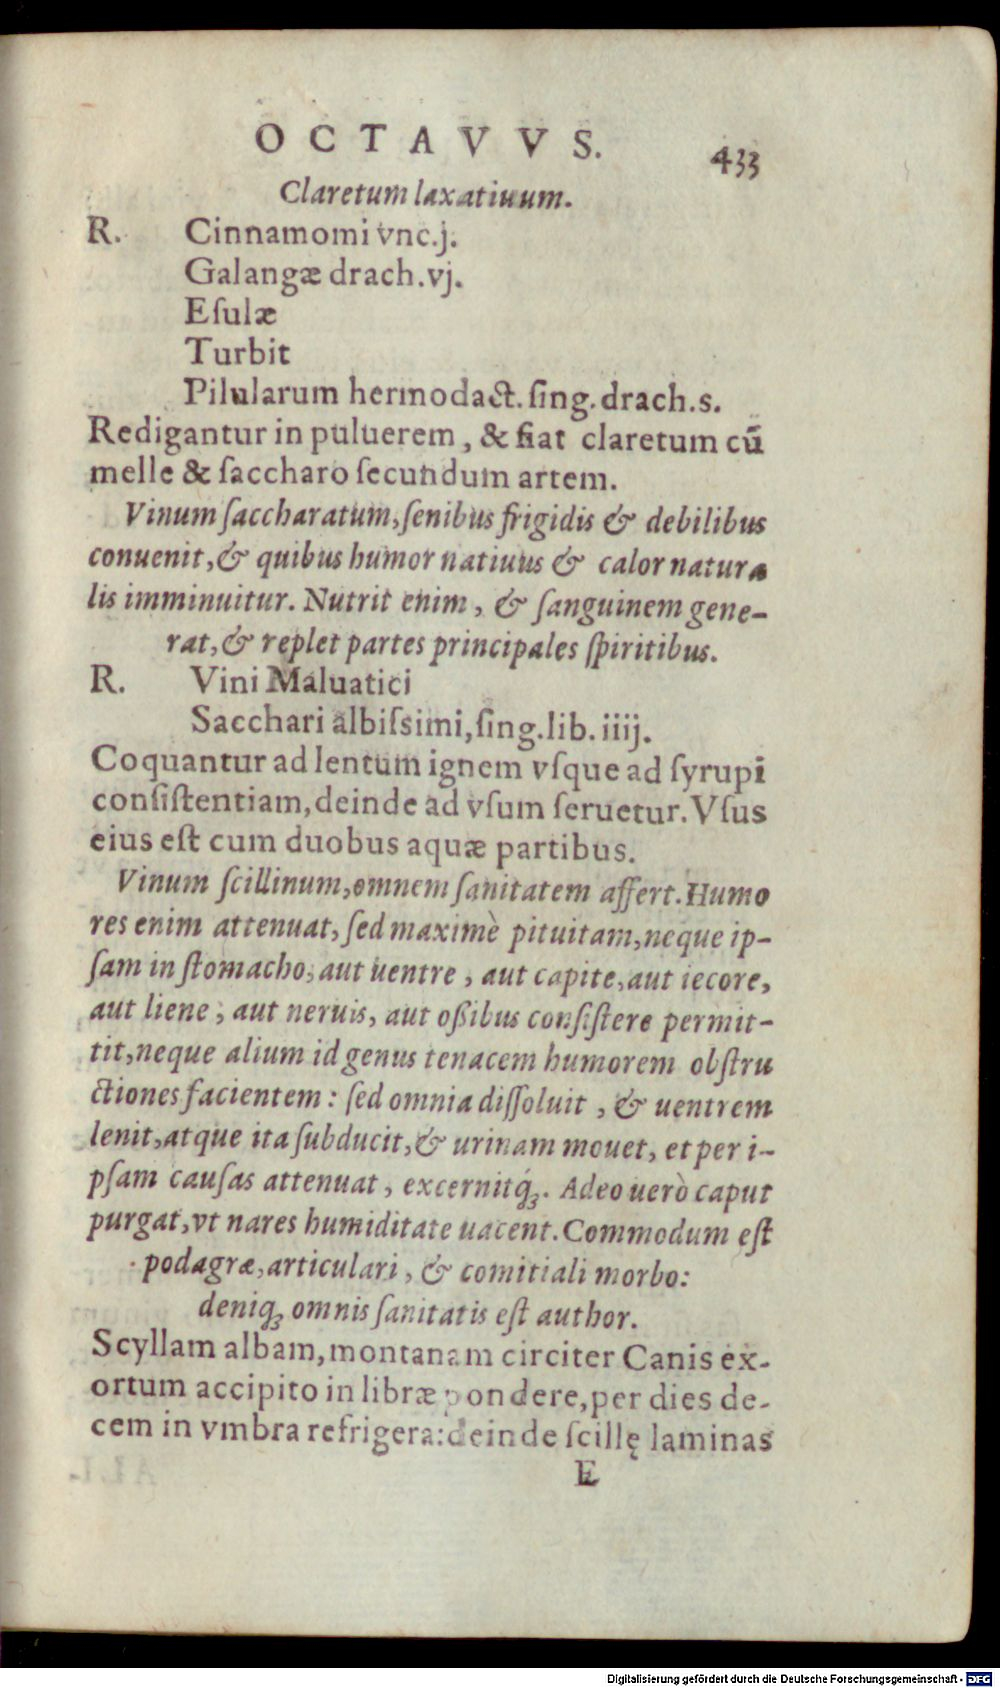 OCTAVVS. 433
Claretum laxatiuum.
R. Cinnamomi vnc.j.
Galangæ drach.vj.
Eſulæ
Turbit
Pilularum hermodact. ſing.drach.s.
Redigantur in puluerem, & fiat claretum cū
melle & ſaccharo ſecundum artem.
Vinum ſaccharatum, ſenibus frigidis & debilibus
conuenit, & quibus humor natiuus & calor natura
lis imminuitur. Nutrit enim, & ſanguinem gene-
rat, & replet partes principales ſpiritibus.
R. Vini Maluatici
Sacchari albiſsimi, ſing.lib.iiij.
Coquantur ad lentum ignem vſque ad ſyrupi
conſiſtentiam, deinde ad vſum ſeruetur. Vſus
eius eſt cum duobus aquæ partibus.
Vinum ſcillinum, omnem ſanitatem affert. Humo
res enim attenuat, ſed maximè pituitam, neque ip-
ſam in ſtomacho, aut uentre, aut capite, aut iecore,
aut liene; aut neruis, aut oßibus conſiſtere permit-
tit, neque alium id genus tenacem humorem obſtru
ctiones facientem: ſed omnia diſſoluit, & uentrem
lenit, atque ita ſubducit, & urinam mouet, et per i-
pſam cauſas attenuat, excernitq́ꝫ. Adeo uerò caput
purgat, vt nares humiditate uacent. Commodum eſt
podagræ, articulari, & comitiali morbo:
deniqꝫ omnis ſanitatis eſt author.
Scyllam albam, montanam circiter Canis ex-
ortum accipito in libræ pondere, per dies de-
cem in vmbra refrigera: deinde ſcillę laminas
E
Digitalisierung gefördert durch die Deutsche Forschungsgemeinschaft - DFG